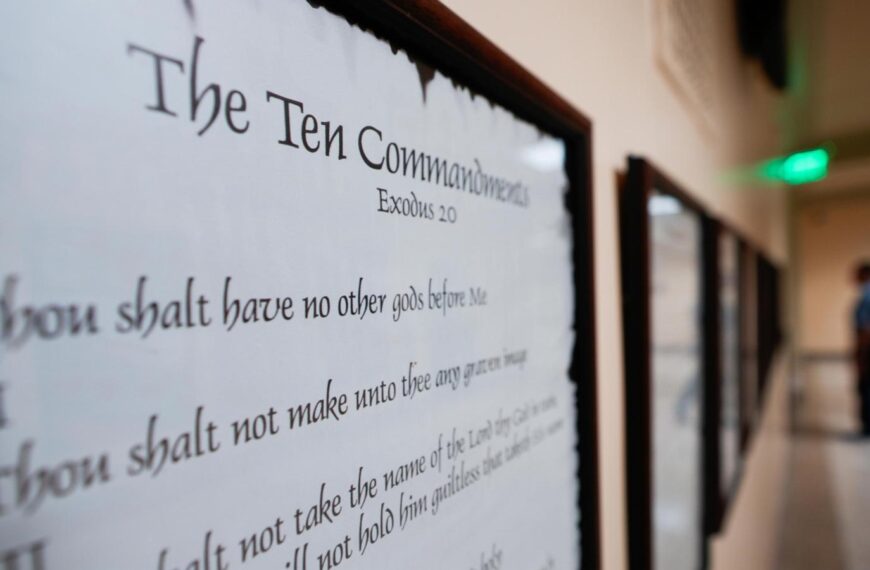 The Ten Commandments
Exodus 20
hou shalt have no other gods before Me
I
Thou shalt not make unto thee any graven image
II
shalt not take the name of the Lord thy God in vain,
ill not hold him guiltless that taketh His name
holy